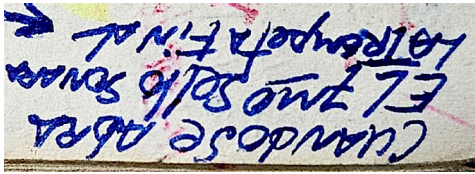 CUANDO SE ABRA
EL 7mo Sello SONARA
LA TROMPETA FINAL